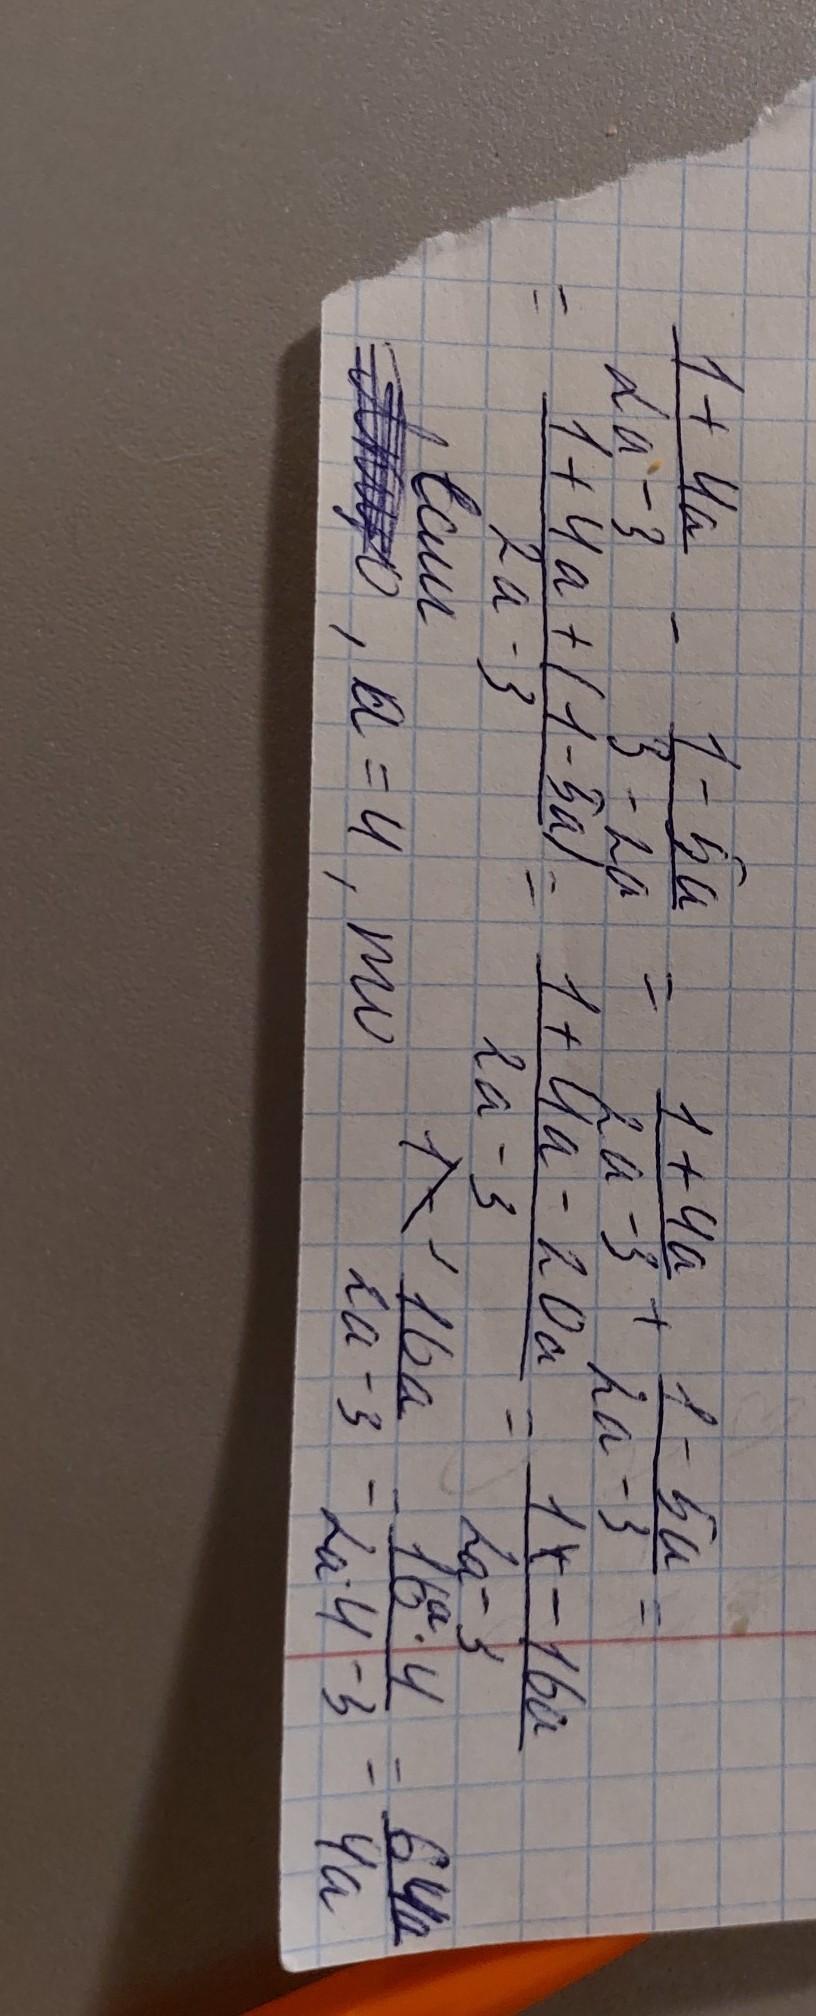 (1 + 4a)/(2a - 3) - (1 - 5a)/(3 - 2a) = (1 + 4a)/(2a - 3) + (1 - 5a)/(2a - 3) =
= (1 + 4a + (1 - 5a))/(2a - 3) = (1 + 4a - 20a)/(2a - 3) = (1 - 16a)/(2a - 3)
Если
, a = 4, то 16a/(2a - 3) = (16a · 4)/(2a · 4 - 3) = 64a/4a